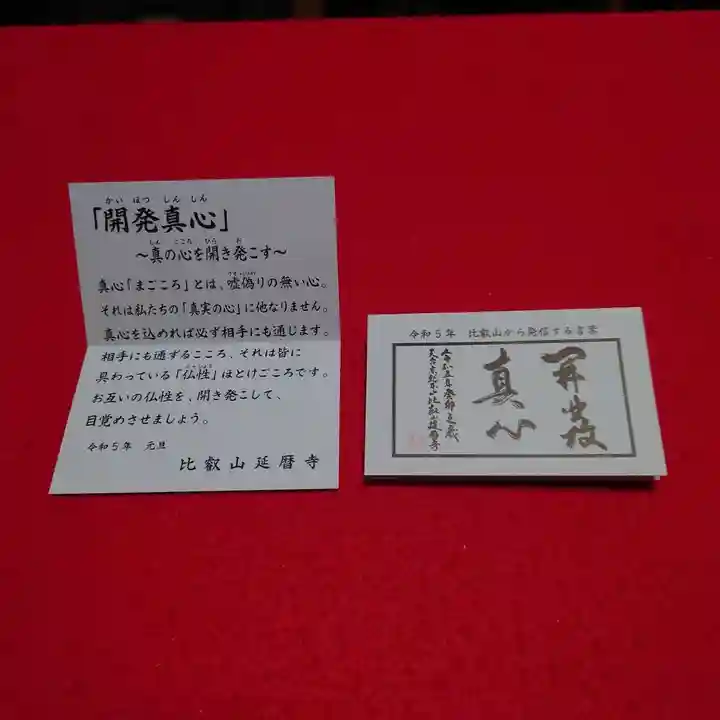 かい ほつ しん しん
「開発真心」
しん こころ ひら お
～真の心を開き発こす～
真心「まごころ」とは、嘘偽りの無い心。
それは私たちの「真実の心」に他なりません。
真心を込めれば必ず相手にも通じます。
相手にも通ずるこころ、それは皆に
具わっている「仏性」ほとけごころです。
お互いの仏性を、開き発こして、
目覚めさせましょう。
令和5年 元旦
比叡山延暦寺
令和5年 比叡山から発信する言葉
開発
真心